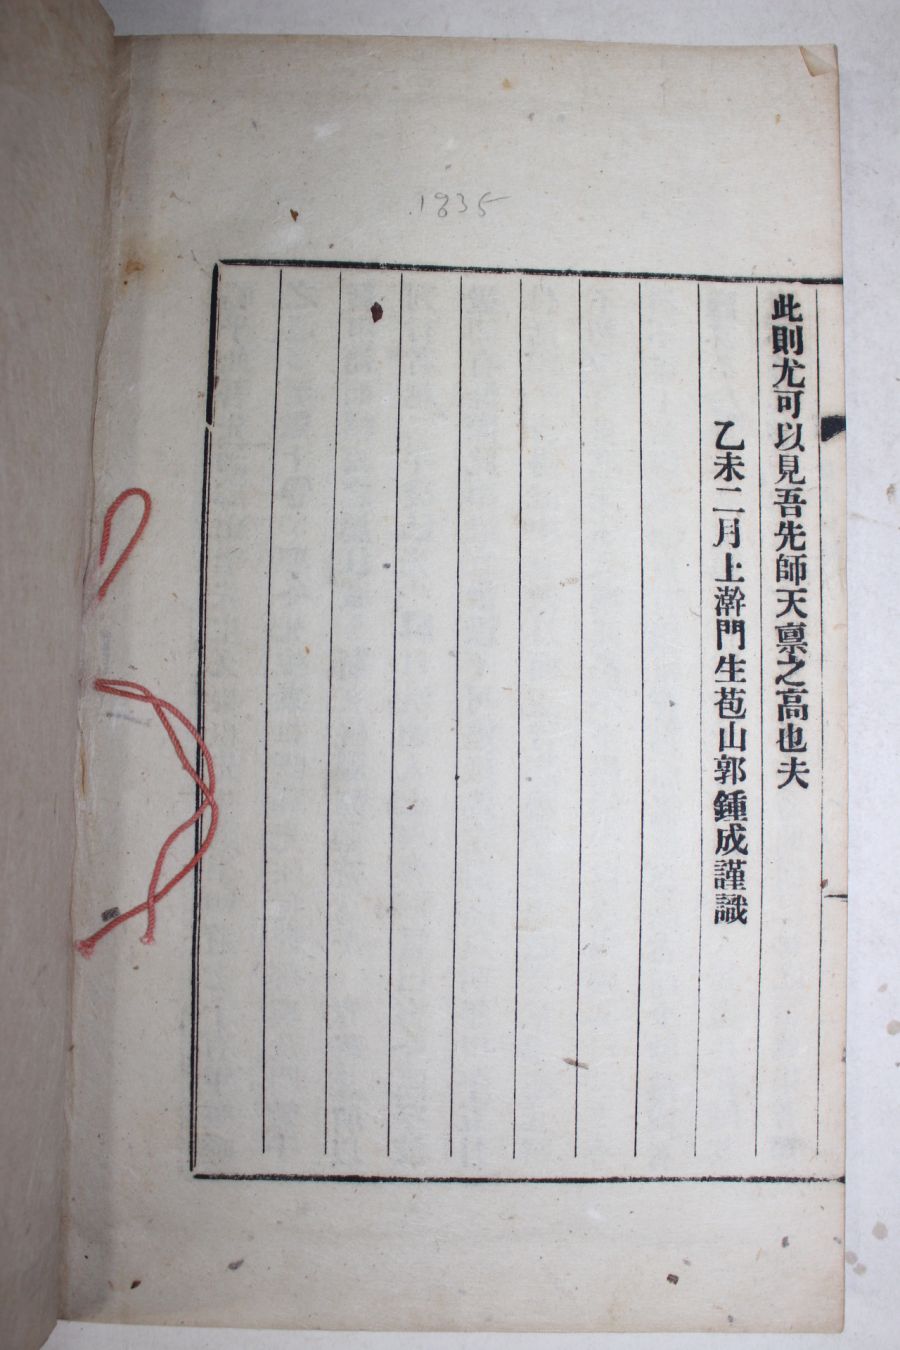 1835
此則尤可以見吾先師天禀之高也夫
乙未二月上澣門生苞山郭鍾成謹識